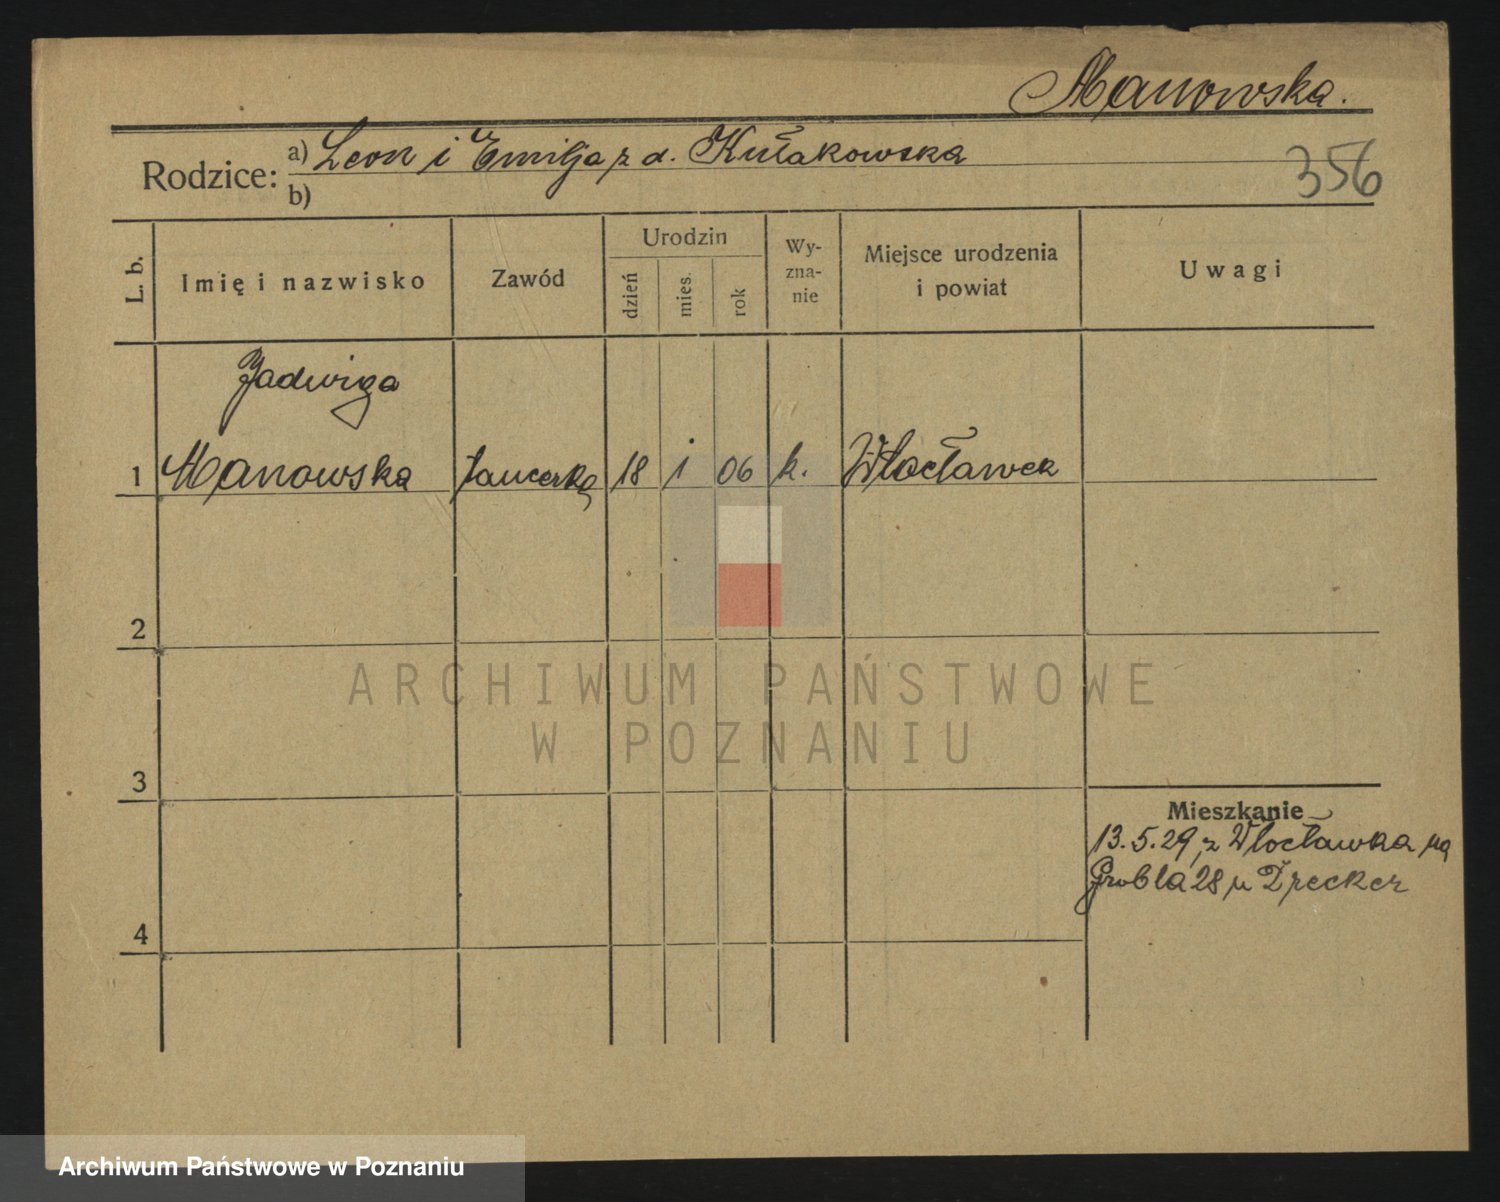 Manowska.
Rodzice: a) Leon i Emilja z d. Kułakowska
b)
356
L. b.
Imię i nazwisko
Zawód
Urodzin
dzień
mies.
rok
Wy-
zna-
nie
Miejsce urodzenia
i powiat
Uwagi
Jadwiga
1 Manowska tancerka 18 1 06 k. Włocławek
2
3
4
Mieszkanie
13.5.29 z Włocławka na
Grobla 28 u Drecker
ARCHIWUM PAŃSTWOWE
W POZNANIU
Archiwum Państwowe w Poznaniu